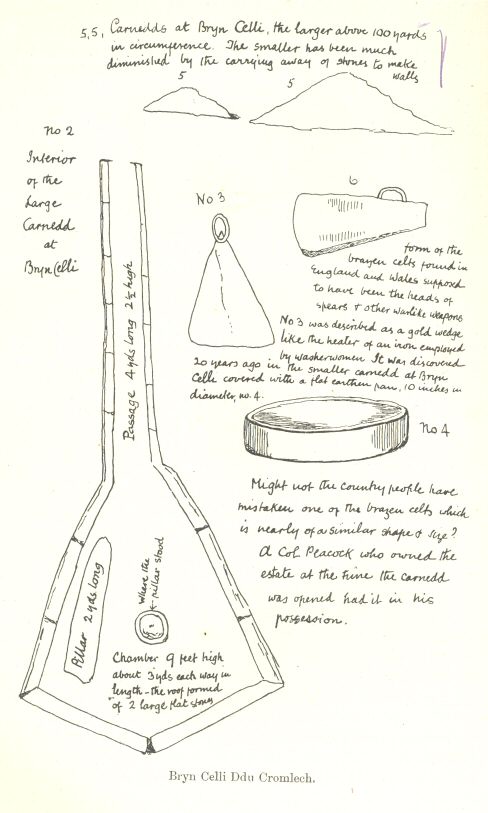 5,5, Carnedds at Bryn Celli, the larger above 100 yards
in circumference. The smaller has been much
diminished by the carrying away of stones to make
walls
5
5
No 2
Interior
of the
Large
Carnedd
at
Bryn Celli
Passage 4 yds long 2½ high
No 3
6
form of the
brazen celts found in
England and Wales supposed
to have been the heads of
spears & other warlike weapons
No 3 was described as a gold wedge
like the heater of an iron employed
by washerwomen It was discovered
20 years ago in the smaller carnedd at Bryn
Celli covered with a flat earthen pan, 10 inches in
diameter, no. 4.
No 4
Might not the country people have
mistaken one of the brazen celts which
is nearly of a similar shape & size?
A Col. Peacock who owned the
estate at the time the carnedd
was opened had it in his
possession.
Pillar 2 yds long
Where the
pillar stood
Chamber 9 feet high
about 3 yds each way in
length - the roof formed
of 2 large flat stones
Bryn Celli Ddu Cromlech.